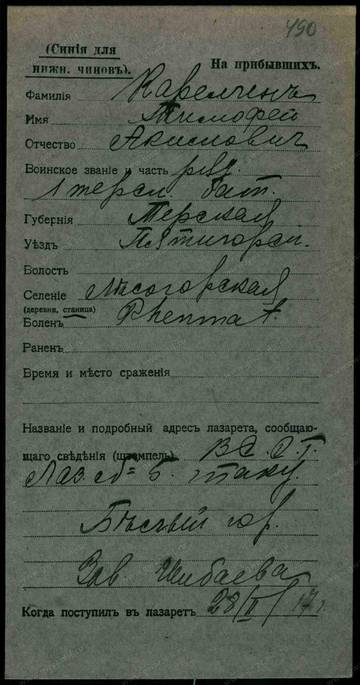 490
(Синія для
нижн. чиновъ).
На прибывшихъ.
Фамилія Карелкинъ
Имя Тимофей
Отчество Акимович
Воинское званіе и часть ряд.
1 терск. бат.
Губернія Терская
Уѣздъ Пятигорск.
Волость
Селеніе Лысогорская
(деревня, станица)
Боленъ Rheumat.
Раненъ
Время и мѣсто сраженія
Названіе и подробный адресъ лазарета, сообщаю-
щаго свѣдѣнія (штемпель) В.С.О.Г.
Лаз. 5.
гор.
Зав.
Когда поступилъ въ лазаретъ 28/II 17 г.